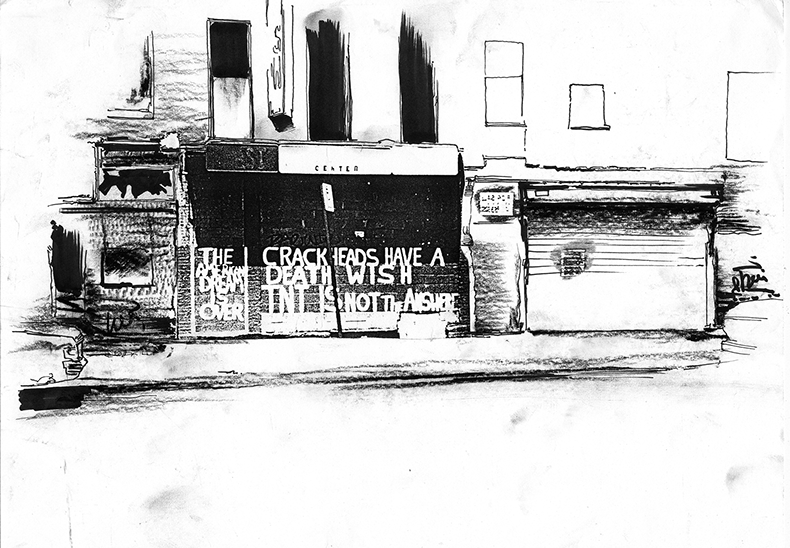 CENTER
THE
AMERICAN
DREAM
IS
OVER
CRACK HEADS HAVE A
DEATH WISH
TNT IS NOT THE ANSWER